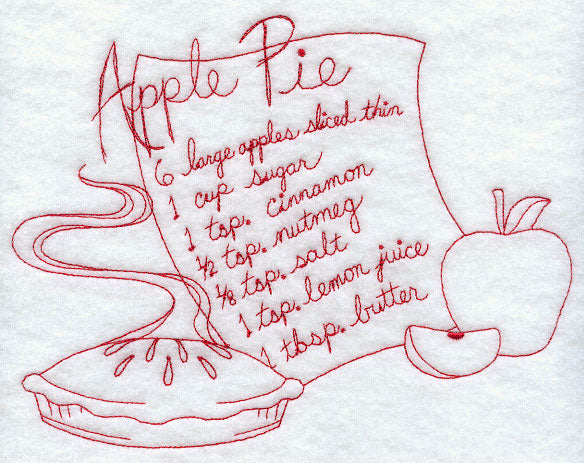 Apple Pie
6 large apples sliced thin
1 cup sugar
1 tsp. cinnamon
½ tsp. nutmeg
⅛ tsp. salt
1 tsp. lemon juice
1 tbsp. butter